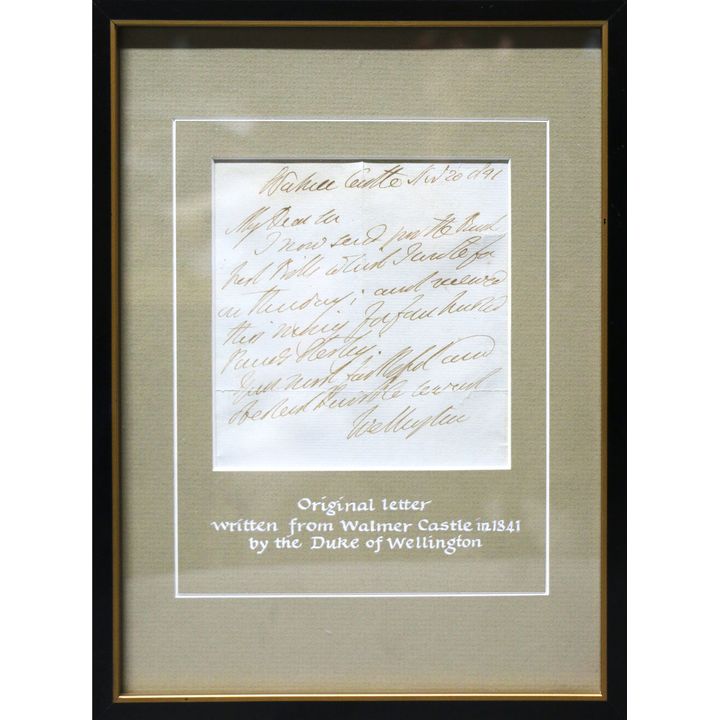 Walmer Castle Nov 20 1841
My Dear Sir
I now send you the Bank
Bills which I wrote for
on Thursday; and received
this morning for four hundred
Pounds Sterling.
Your most faithful and
obedient Humble Servant
Wellington
Original letter
written from Walmer Castle in 1841
by the Duke of Wellington